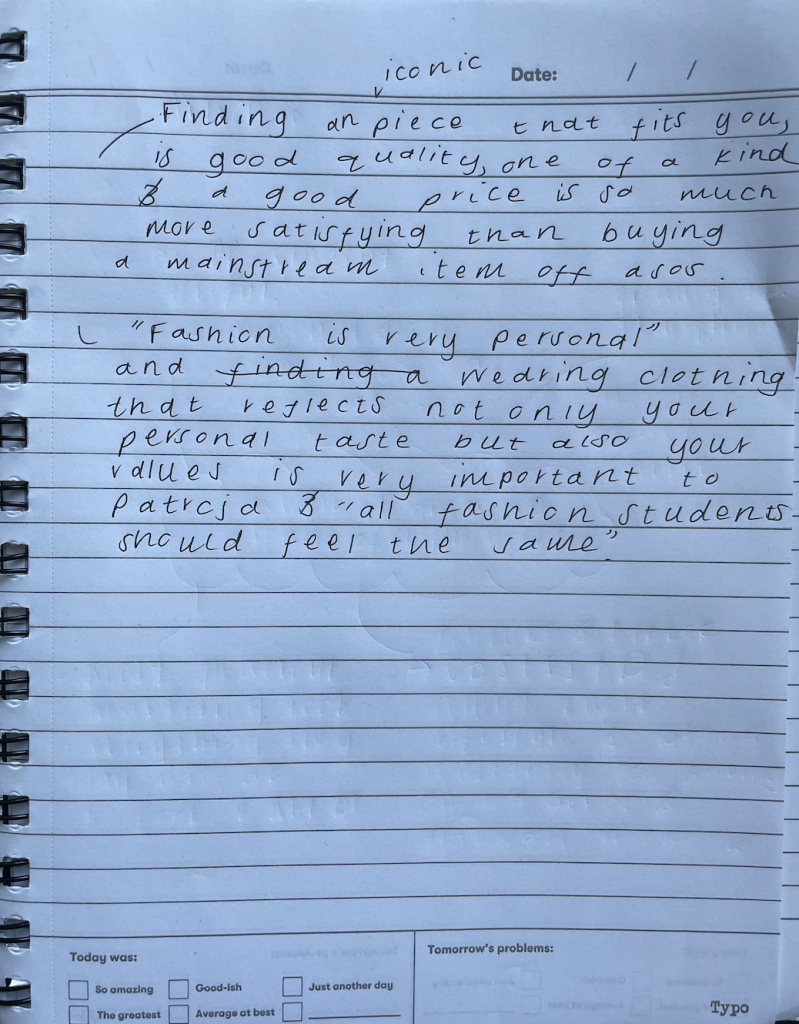 iconic
Date: / /
Finding an piece that fits you,
is good quality, one of a kind
& a good price is so much
more satisfying than buying
a mainstream item off asos.
"Fashion is very personal"
and finding a wearing clothing
that reflects not only your
personal taste but also your
values is very important to
Patrcja & "all fashion students
should feel the same".
Today was:
So amazing Good-ish Just another day
The greatest Average at best
Tomorrow's problems:
Typo